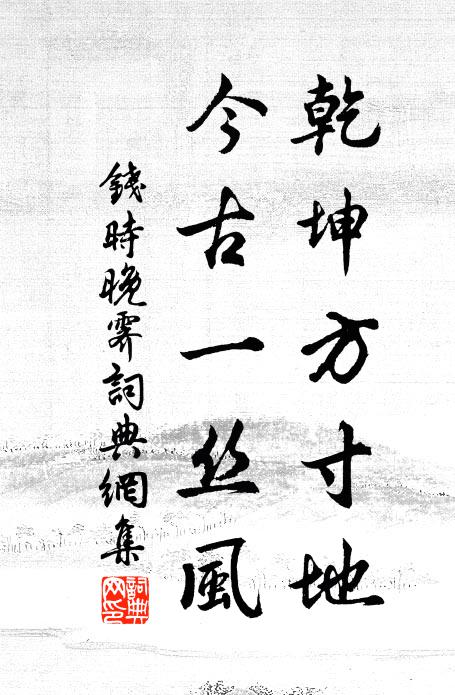 乾坤方寸地
今古一丝風
錢時晚霽詞典網集
詞典網印